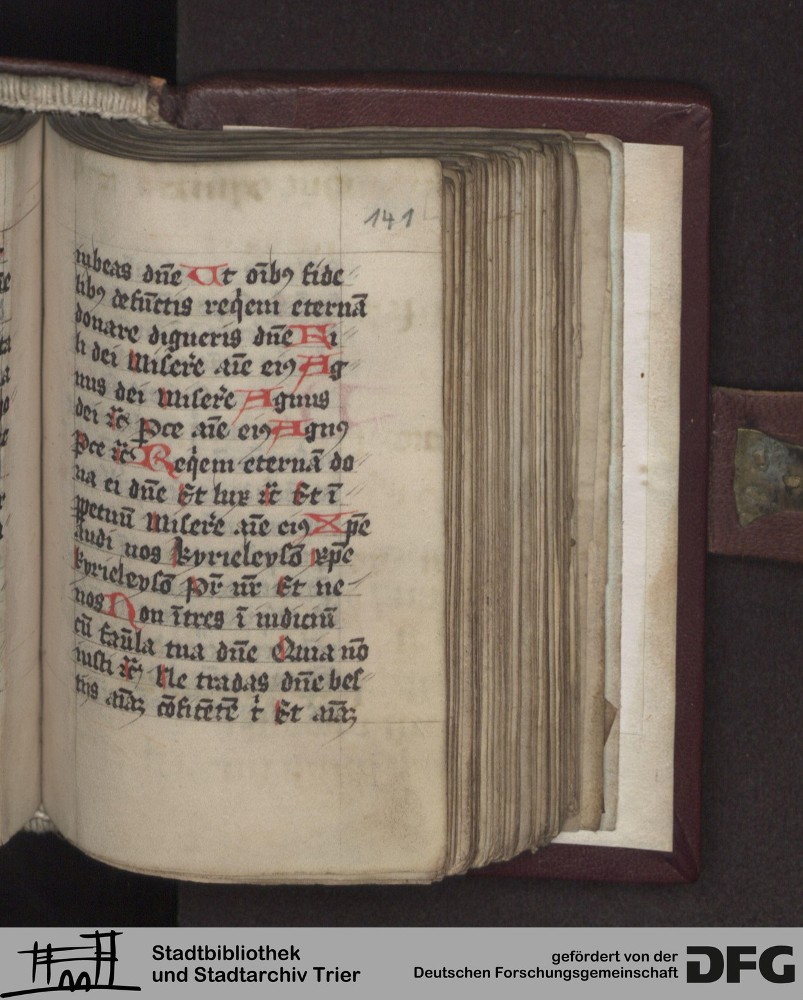 141
iubeas dn̄e Ut oı̄bꝯ fide
libꝯ defūctis reqͥem eternā
donare digneris dn̄e Fi
li dei Miser̄e aı̄e eiꝯ Ag
nus dei Miser̄e Agnus
dei ⁊c̄ Pce aı̄e eiꝯ Agnꝯ
Pce ⁊c̄ Reqͥem eternā do
na ei dn̄e Et lux ⁊c̄ Et ī
ꝑpetuū Miser̄e aı̄e eiꝯ Xp̄e
Audi nos kyrieleysō xp̄e
kyrieleysō Pr̄ nr̄ Et ne
nos Non ītres ī iudiciū
cū faūla tua dn̄e Quia nō
iusti ⁊c̄ Ne tradas dn̄e bes
tijs aı̄aꝫ cōfitētē tͥ Et aı̄aꝫ
Stadtbibliothek
und Stadtarchiv Trier
gefördert von der
Deutschen Forschungsgemeinschaft
DFG